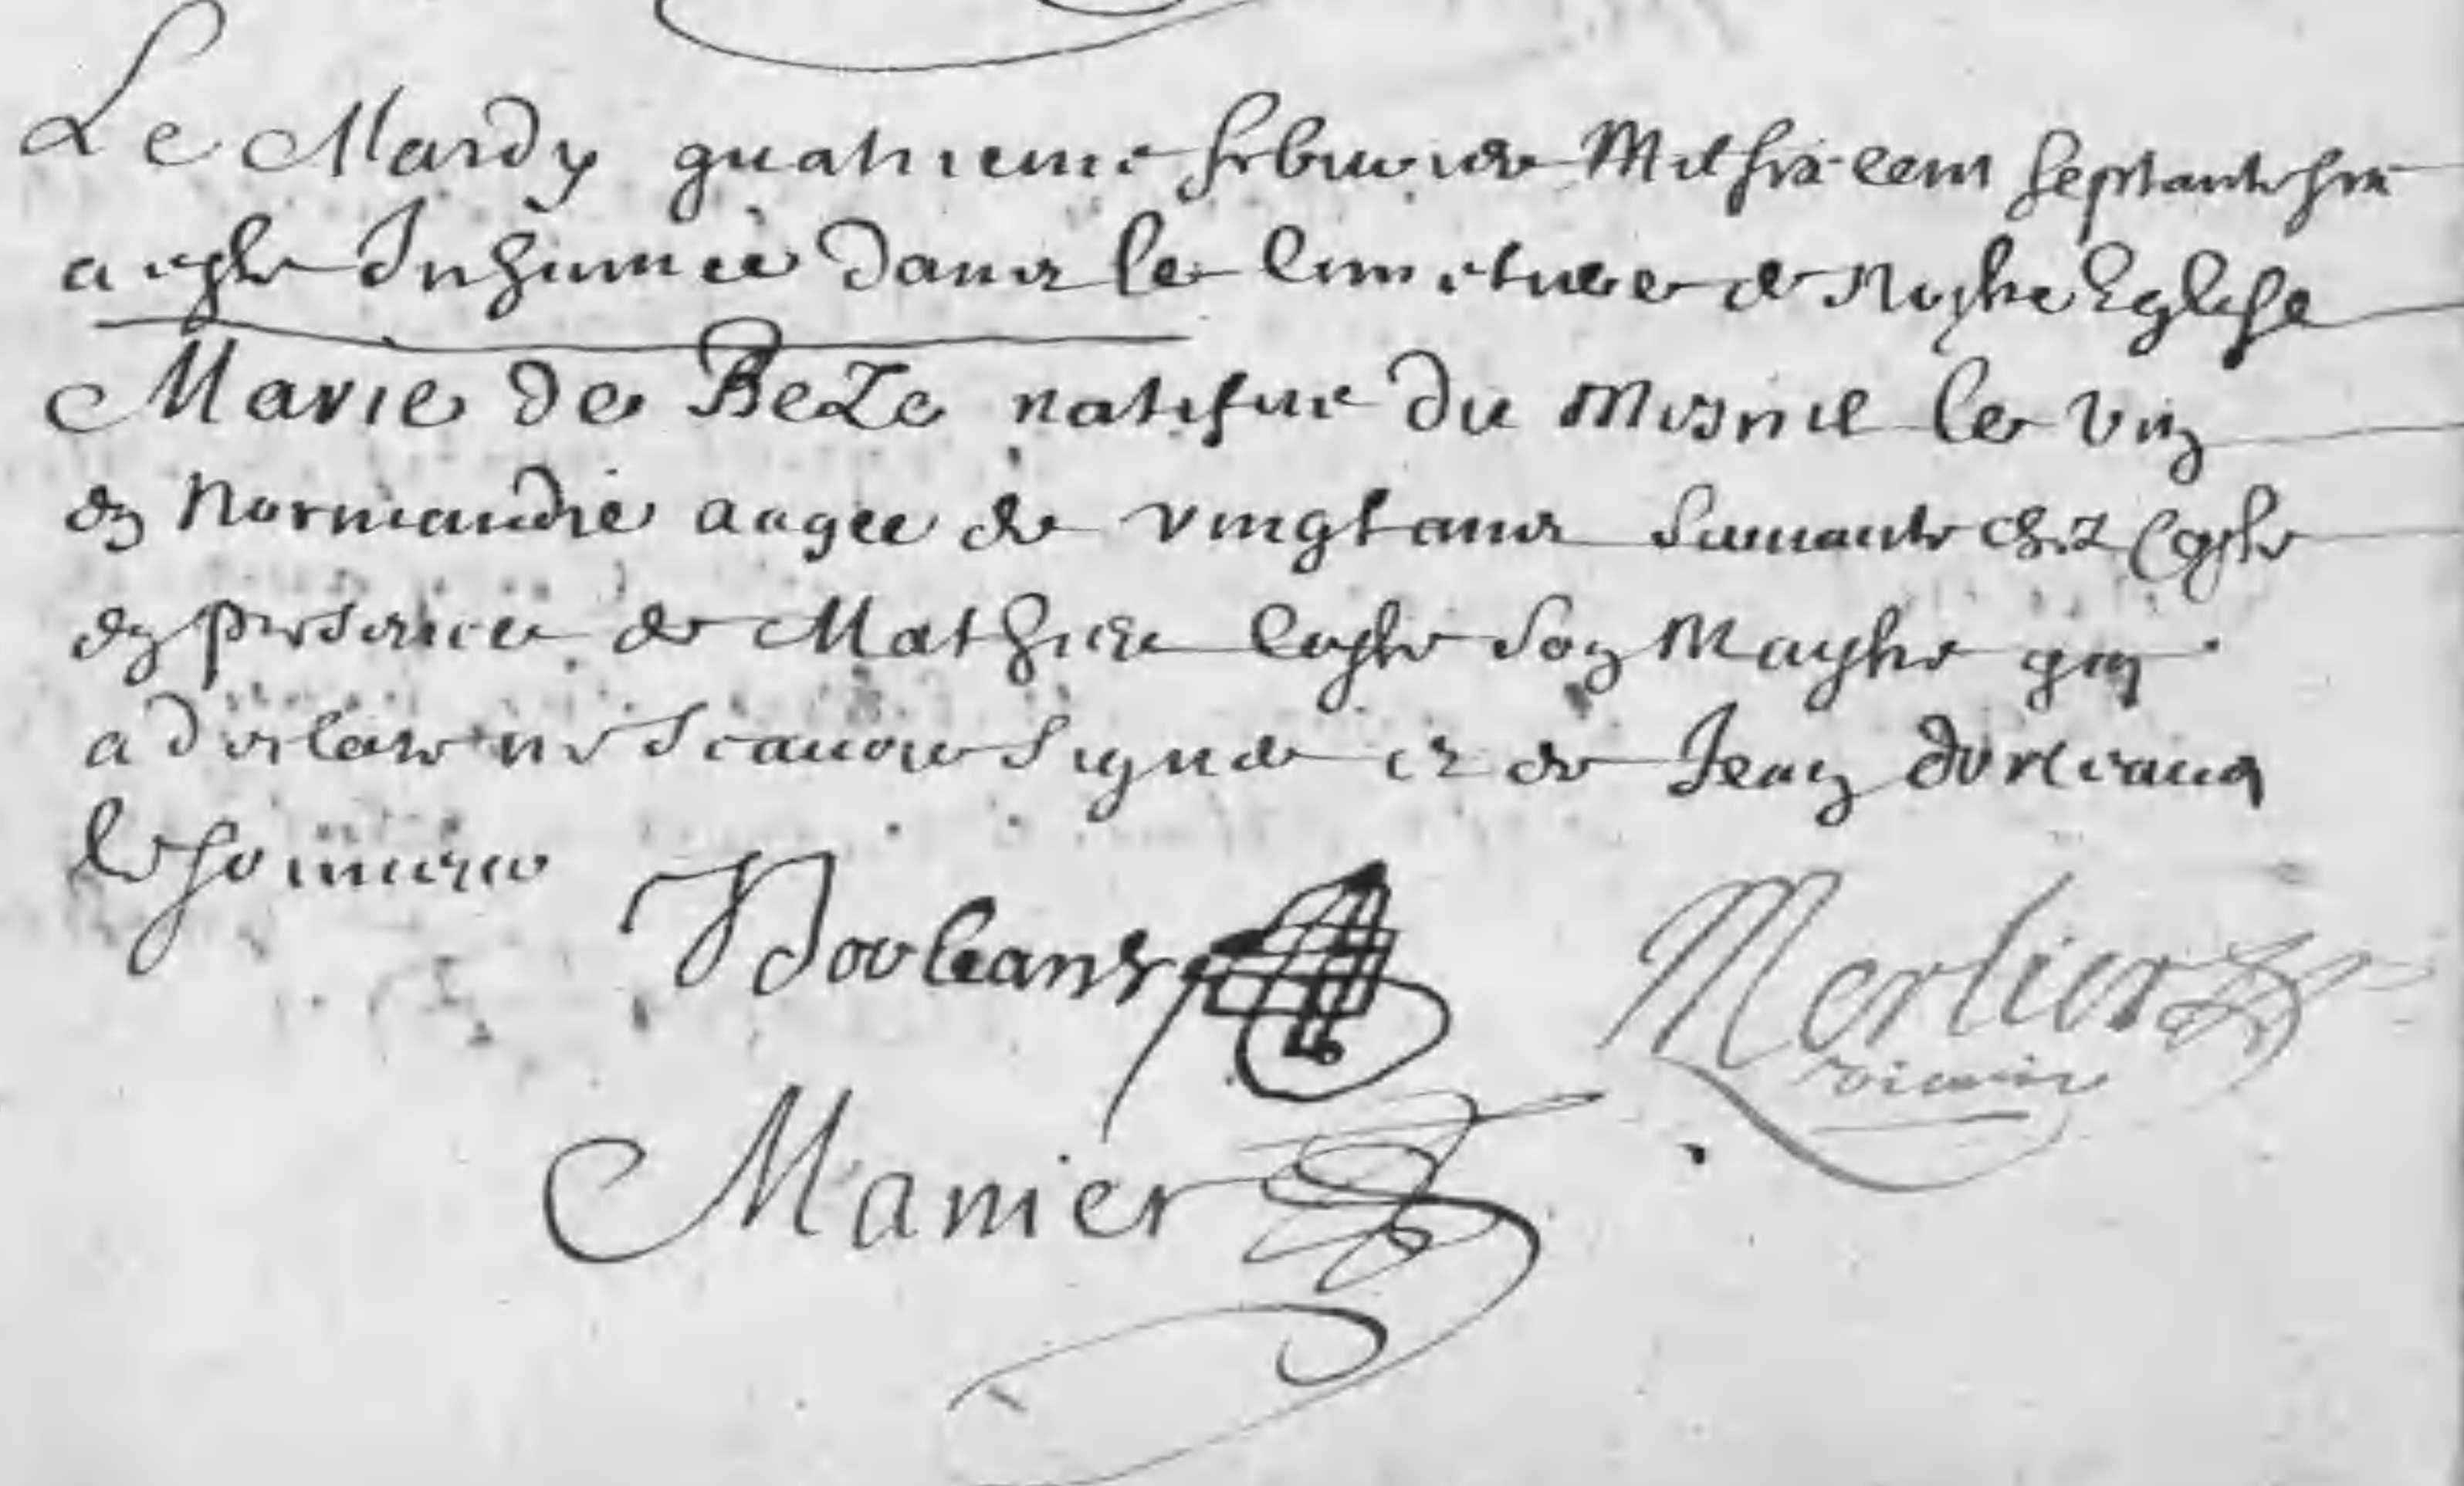 Le Mardy quatrieme febvrier Mil six cent septante six
a esté Inhumée dans le Cimetiere de Nostre Eglise
Marie de BeZe natifue du Mesnil les
en Normandie aagee de vingt ans seruante chez Coste
en presence de Mathieu Coste son Maystre quy
a declare ne scauoir signer et de Jean dorleans
D'orleans
Merlier
vicaire
Manier